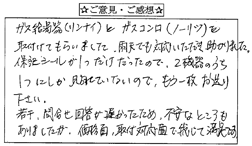 ☆ご意見・ご感想☆
ガス給湯器(リンナイ)とガスコンロ(ノーリツ)を
取付けてもらいまして、雨天でも対応いただき助かりました。
保証シールが1つだけだったので、2機器のうち
1つにしか貼れていないので、もう一枚お送り
下さい。
若干、問合せ回答が遅かったため、不安なところも
ありましたが、価格面、取付対応面で総じて満足です